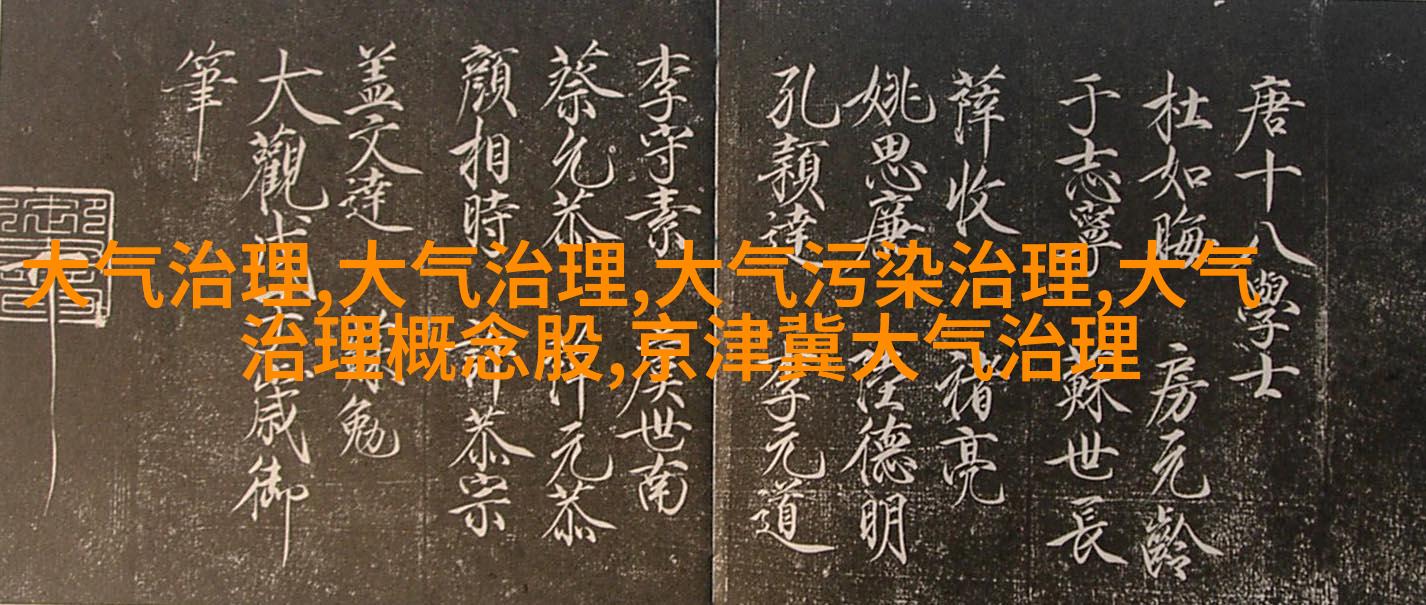 大气治理,大气治理,大气污染治理,大气
治理概念股,京津冀大气治理
唐十八學士
杜如晦 房元齡
于志寧 蘇世長
薛收 褚亮
姚思廉 陸德明
孔穎達 李元道
李守素 虞世南
蔡允恭 元恭
顏相時 許恭宗
蓋文達
大觀戊 歲御
筆